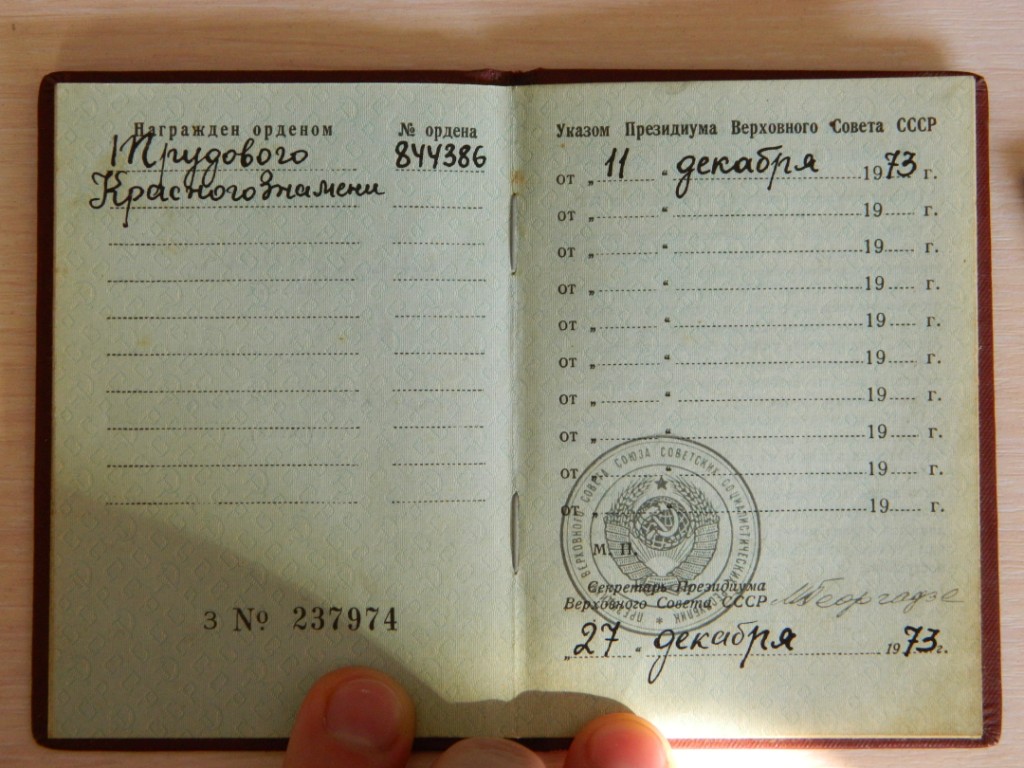 Награжден орденом
№ ордена
Трудового
844386
Красного Знамени
З № 237974
Указом Президиума Верховного Совета СССР
от „ 11 “ декабря 1973 г.
от „ “ 19 г.
от „ “ 19 г.
от „ “ 19 г.
от „ “ 19 г.
от „ “ 19 г.
от „ “ 19 г.
от „ “ 19 г.
от „ “ 19 г.
от „ “ 19 г.
М. П.
ПРЕЗИДИУМ ВЕРХОВНОГО СОВЕТА СОЮЗА СОВЕТСКИХ СОЦИАЛИСТИЧЕСКИХ РЕСПУБЛИК
Секретарь Президиума
Верховного Совета СССР М Георгадзе
„ 27 “ декабря 1973 г.